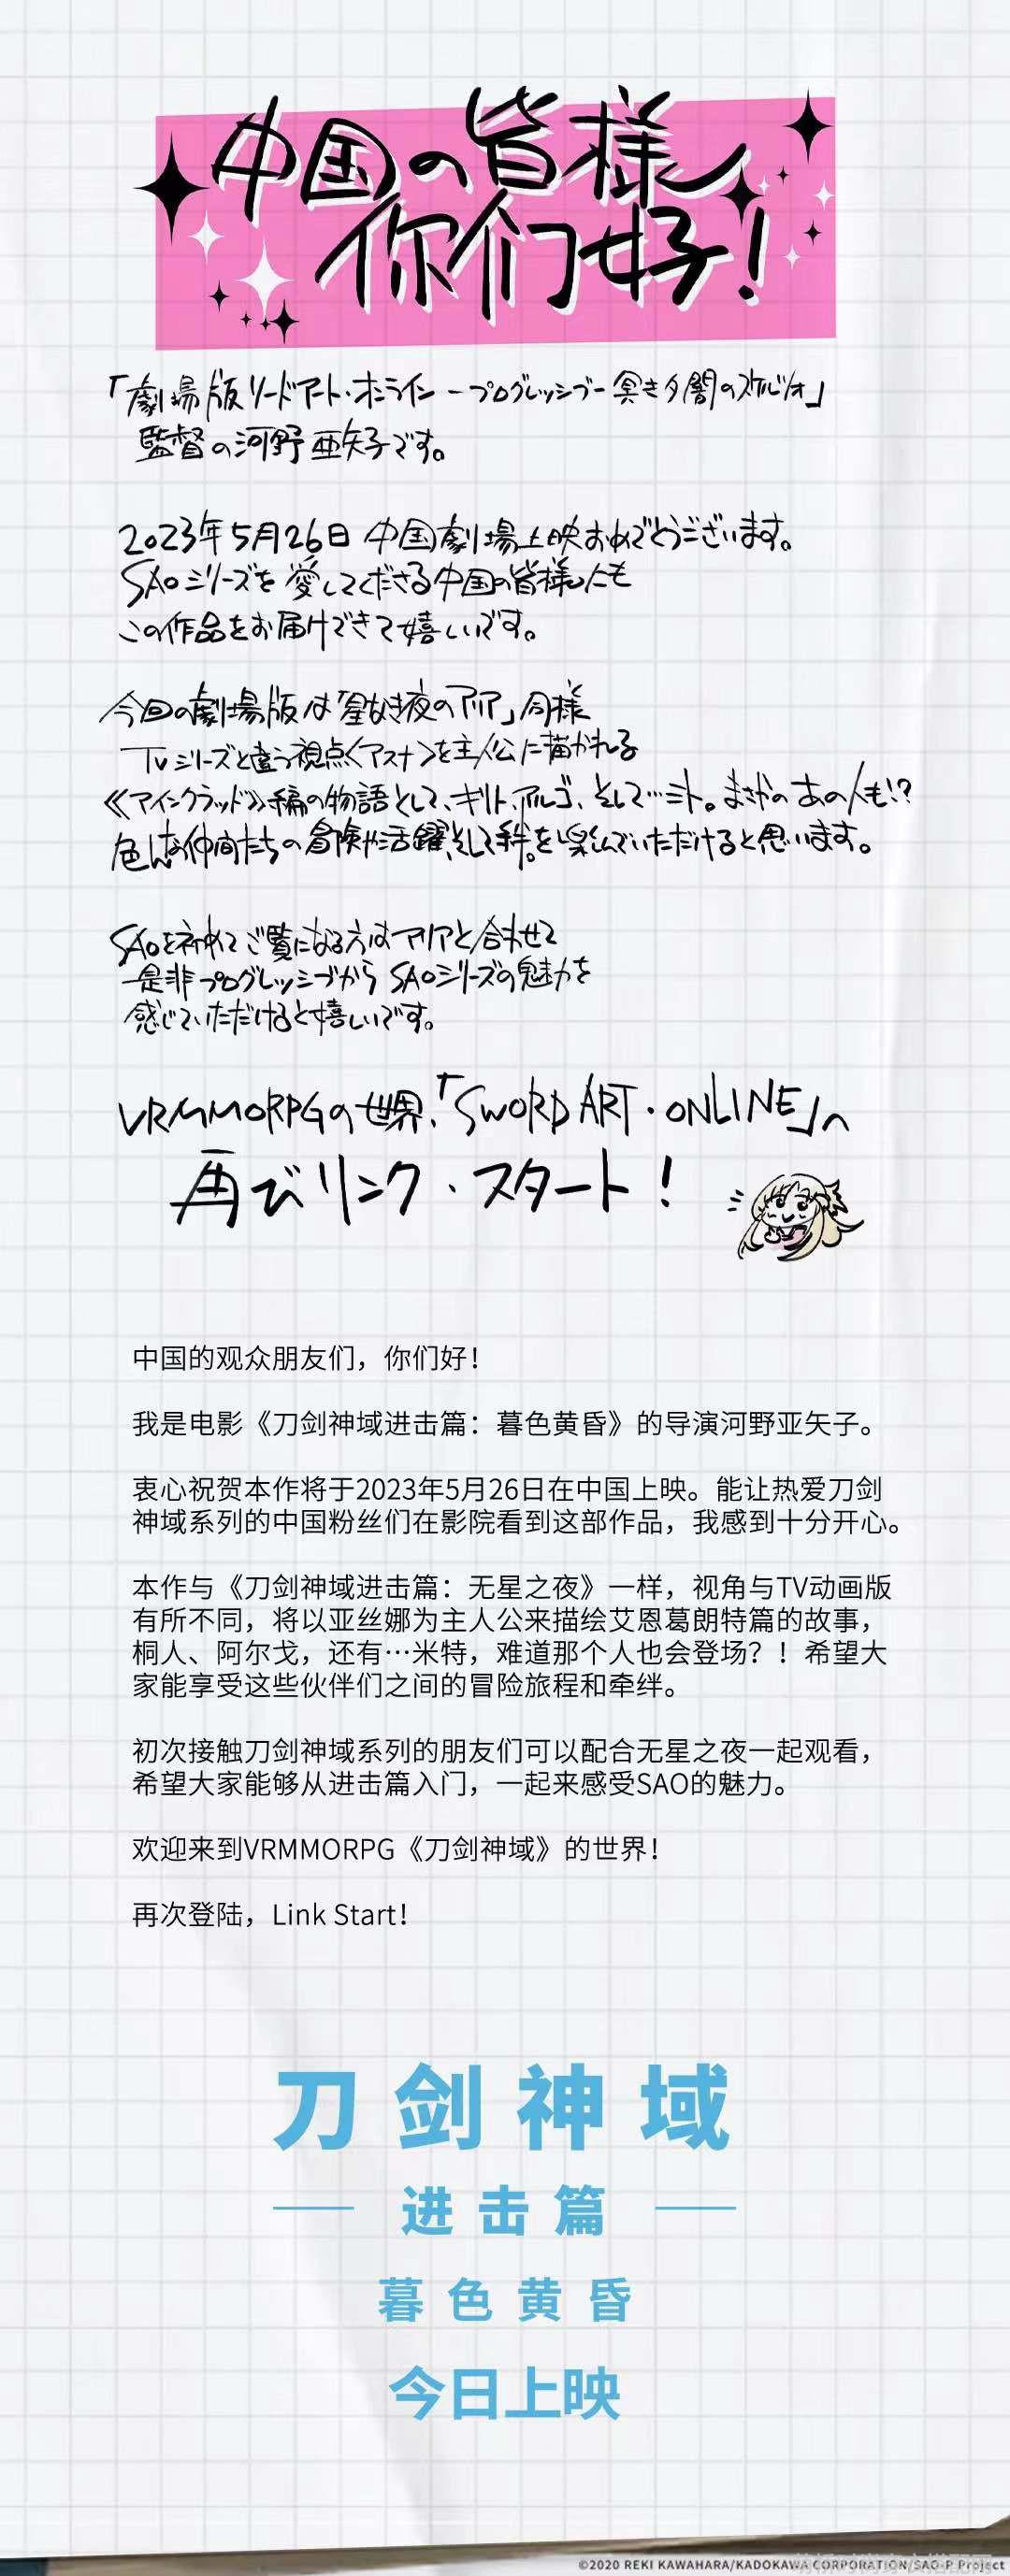 中国の皆様
你们好！
「劇場版ソードアート・オンライン －プログレッシブ－ 冥き夕闇のスケルツォ」
監督の河野亜矢子です。
2023年5月26日 中国劇場上映おめでとうございます。
SAOシリーズを愛してくださる中国の皆様にも
この作品をお届けできて嬉しいです。
今回の劇場版は「星なき夜のアリア」同様
TVシリーズと違う視点〈アスナ〉を主人公に描かれる
《アインクラッド》編の物語として、キリト、アルゴ、そして…ミト。まさかのあの人も!?
色んな仲間たちの冒険や活躍、そして絆。を楽しんでいただけると思います。
SAOを初めてご覧になる方はアリアと合わせて
是非プログレッシブから SAOシリーズの魅力を
感じていただけると嬉しいです。
VRMMORPGの世界、「SWORD ART・ONLINE」へ
再びリンク・スタート！
中国的观众朋友们，你们好！
我是电影《刀剑神域进击篇：暮色黄昏》的导演河野亚矢子。
衷心祝贺本作将于2023年5月26日在中国上映。能让热爱刀剑
神域系列的中国粉丝们在影院看到这部作品，我感到十分开心。
本作与《刀剑神域进击篇：无星之夜》一样，视角与TV动画版
有所不同，将以亚丝娜为主人公来描绘艾恩葛朗特篇的故事，
桐人、阿尔戈，还有…米特，难道那个人也会登场？！希望大
家能享受这些伙伴们之间的冒险旅程和牵绊。
初次接触刀剑神域系列的朋友们可以配合无星之夜一起观看，
希望大家能够从进击篇入门，一起来感受SAO的魅力。
欢迎来到VRMMORPG《刀剑神域》的世界！
再次登陆，Link Start！
刀剑神域
进击篇
暮色黄昏
今日上映
©2020 REKI KAWAHARA/KADOKAWA CORPORATION/SAO-P Project